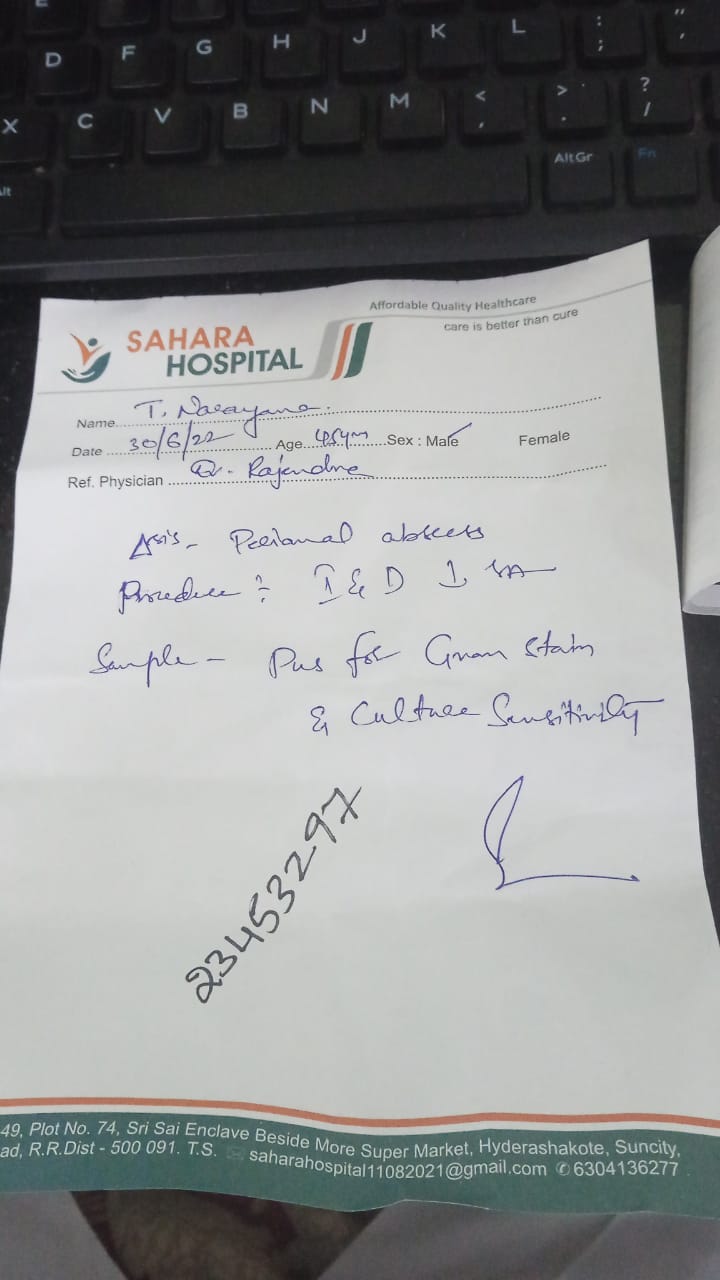 E
D F G H J K L : ;
" '
X C V B N M < , > . ? /
Alt AltGr Fn
Affordable Quality Healthcare
care is better than cure
SAHARA
HOSPITAL
Name T. Narayana
Date 30/6/22 Age 45y Sex : Male Female
Ref. Physician Dr. Rajendra
Perianal abscess
Procedure : I & D
Sample - Pus for Gram Stain
& Culture Sensitivity
23453297
49, Plot No. 74, Sri Sai Enclave Beside More Super Market, Hyderashakote, Suncity,
ad, R.R.Dist - 500 091. T.S. saharahospital11082021@gmail.com 6304136277